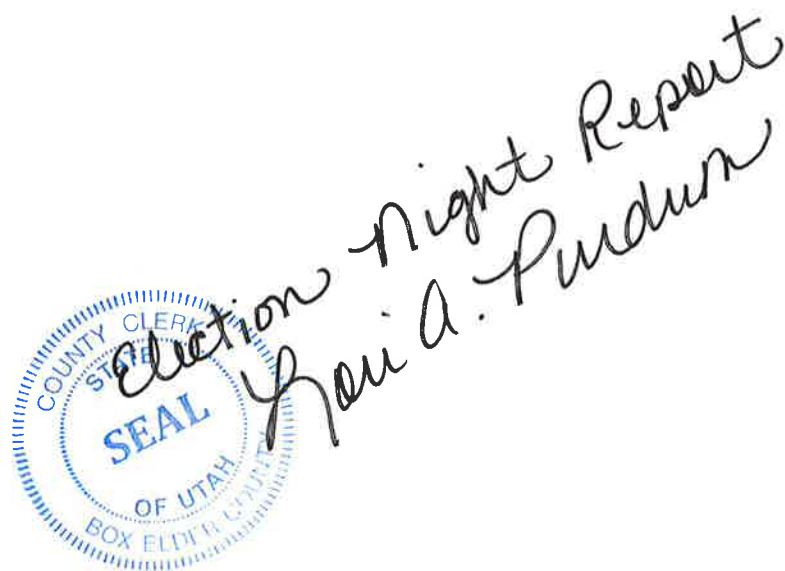 Election Night Report
Lori A. Purdum
COUNTY CLERK
STATE
SEAL
OF UTAH
BOX ELDER COUNTY